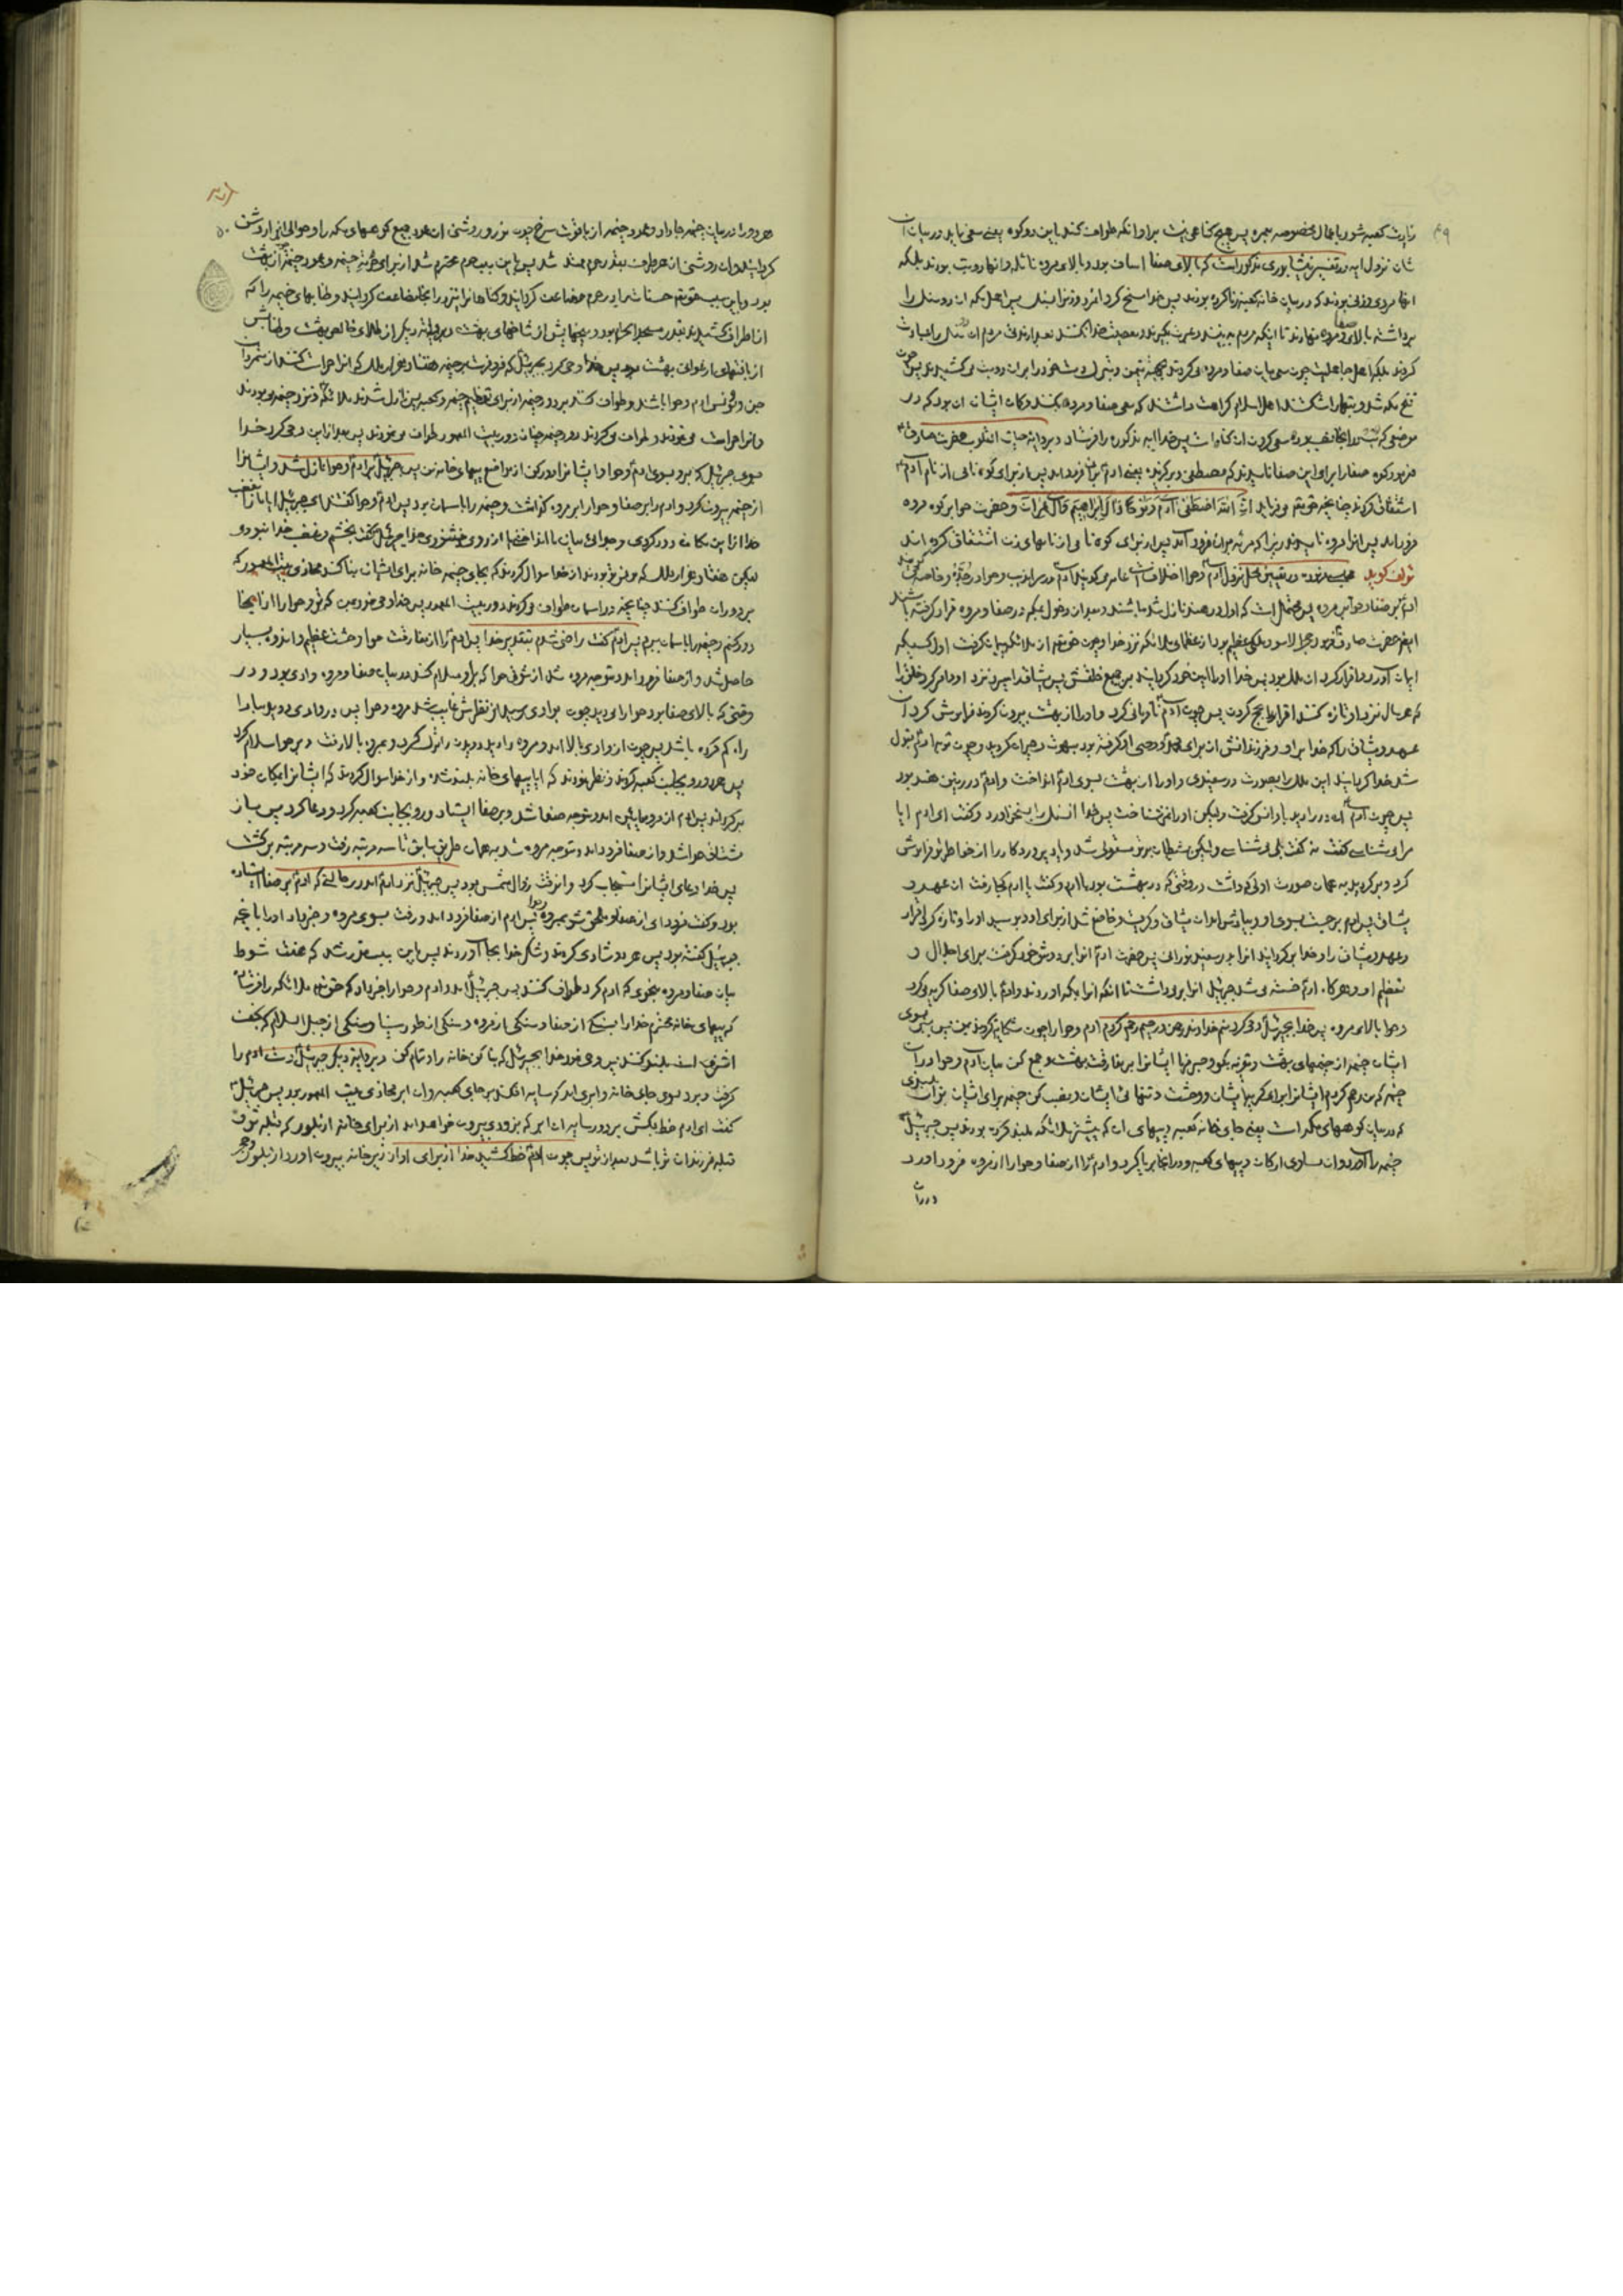 ۴۹
زیارت کعبه شود باعمال مخصوصه عمره پس هیچ کناهی نیست بر او انکه طواف کند باین دو کوه یعنی سعی نماید در میان ان
شان نزول ایه در تفسیر نیشابوری مذکور است که بالای صفا اساف بود و بالای مروه نائله و انها دو بت بودند بلکه
انها مردی و زنی بودند که در میان خانه کعبه زنا کرده بودند پس خدا مسخ کرد
برداشته بالای صفا و مروه نهادند تا اینکه مردم به بینند و عبرت بکیرند
کردند بلکه اهل جاهلیت چون سعی میان صفا و مروه می کردند
فتح مکه شد و بتها را شکستند اهل اسلام کراهت داشتند که سعی صفا و مروه بکنند و کمان ایشان ان بود که در
پس خدا ایه مذکوره را فرستاد و بروایة حیات القلوب حضرت صادق
فرمود کوه صفا را برای این صفا نامیدند که مصطفی و برکزیده یعنی ادم بر ان فرود امد پس از برای کوه نامی از نام آدم
اشتقاق کردند چنانچه حقتعالی می فرماید ان الله اصطفی آدم و نوحا و ال ابراهیم و ال عمران و حضرت حوا بر کوه مروه
فرود امد پس انرا مروه نامیدند زیرا که مرئه بر ان فرود آمد پس از برای کوه نامی از نامهای زن اشتقاق کرده اند
مؤلف کوید در تعیین محل نزول آدم و حوا اختلاف است عامه می کویند آدم در سراندیب و حوا در جده و خاصه می کویند
ادم بر صفا و حوا بر مروه پس محتمل است که اول در هند نازل شده باشند و بعد از دخول مکه در صفا و مروه قرار کرفته باشند
حضرت صادق فرمود حجر الاسود ملکی عظیم بود از عظمای ملائکه نزد خدا و چون حقتعالی از ملائکه پیمان کرفت اول کسیکه
ایمان آورد و اقرار کرد ان ملک بود پس خدا او را امین خود کردانید بر جمیع خلقش پس میثاق را سپرد نزد او و امر کرد خلق را
که هر سال نزد او تازه کنند اقرار را بحج کردن پس چون آدم نافرمانی کرد و او را از بهشت بیرون کردند فراموش کرد ان
عهد و میثاق را که خدا بر او و فرزندانش از برای محمد و وصی او کرفته بود مبهوت و حیران کردید و چون توبه ادم قبول
شد خدا کردانید این ملک را بصورت در سفیدی و او را از بهشت بسوی ادم انداخت و ادم در زمین هند بود
پس چون آدم ان در را دید باو انس کرفت ولیکن او را نمی شناخت پس خدا ان سنک را بسخن اورد و کفت ای ادم ایا
مرا می شناسی کفت نه کفت بلی می شناسی ولیکن شیطان بر تو مستولی شد و یاد پروردکار را از خاطر تو فراموش
کرد و برکردید به همان صورت اولی که داشت در وقتی که در بهشت بود با ادم و کفت یا ادم کجا رفت ان عهد و
میثاق پس ادم برجست بسوی او و بیادش امد ان میثاق و کریست و خاضع شد از برای او و بوسید او را و تازه کرد اقرار
و عهد و میثاق را و خدا برکردانید انرا بدر سفید نورانی پس حضرت ادم انرا بر دوش خود کرفت برای اجلال و
تعظیم او و هرکاه ادم خسته می شد جبرئیل انرا بر می داشت تا انکه انرا بمکه اوردند و ادم بالای صفا کریه می کرد
و حوا بالای مروه پس خدا بجبرئیل وحی کرد منم خداوند رحمن و رحیم رحم کردم آدم و حوا را چون شکایت کردند بمن پس ببر بسوی
ایشان خیمه از خیمهای بهشت و تعزیه بکو و صبر فرما ایشانرا بر مفارقت بهشت و جمع کن میان آدم و حوا در ان
خیمه که من رحم کردم ایشانرا برای کریه ایشان و وحشت و تنهائی ایشان و نصب کن خیمه برای ایشان بر ان بلندی
که در میان کوههای مکه است یعنی جای خانه کعبه و پیهای ان که پیشتر ملائکه بلند کرده بودند پس جبرئیل
خیمه را آورد و ان مساوی ارکان و پیهای کعبه و در انجا برپا کرد و ادم را از صفا و حوا را از مروه فرود اورد
و در ان
۵۰
هر دو را در میان خیمه جا داد و عمود خیمه از یاقوت سرخ بود و نور و روشنی ان عمود جمیع کوههای مکه را و حوالی انرا روشن
کردانید و ان روشنی از هر طرف بقدر حرم ممتد شد پس باین سبب حرم محترم شد از برای حرمت خیمه و عمود
بود و باین سبب حقتعالی حسنات را در حرم مضاعف کردانید و کناهانرا نیز در انجا مضاعف کردانید و طنابهای خیمه را که
از اطراف کشیدند بقدر مسجد الحرام بود و میخهایش از شاخهای بهشت و بروایة دیکر از طلای خالص بهشت و طنابش
از بافتهای ارغوانی بهشت بود پس خدا وحی کرد بجبرئیل که فرو فرست بر خیمه هفتاد هزار ملک که انرا حراست کنند از متمردان
جن و مونس ادم و حوا باشند و طواف کنند بر دور خیمه از برای تعظیم خیمه و کعبه پس نازل شدند ملائکه و نزد خیمه می بودند
و انرا حراست می نمودند و طواف می کردند دور خیمه چنانکه دور بیت المعمور طواف می نمودند پس بعد از این وحی کرد خدا
بسوی جبرئیل که برو بسوی ادم و حوا و ایشانرا دور کن از مواضع پیهای خانه من پس جبرئیل بر ادم و حوا نازل شد و ایشانرا
از خیمه بیرون کرد و ادم را بر صفا و حوا را بر مروه کذاشت و خیمه را باسمان برد پس ادم و حوا کفتند ای جبرئیل ایا از غضب
خدا ما را از این مکان دور کردی و جدائی میان ما انداختی یا از روی خشنودی خدا جبرئیل کفت بخشم و غضب خدا نبود
لیکن هفتاد هزار ملک که مونس تو بودند از خدا سوال کردند که بجای خیمه خانه برای ایشان بنا کند محاذی بیت المعمور که
بر دور ان طواف کنند چنانچه در اسمان طواف می کردند دور بیت المعمور پس خدا وحی فرمود بمن که تو و حوا را از اینجا
دور کنم و خیمه را باسمان برم پس ادم کفت راضی شدم بتقدیر خدا پس ادم را از مفارقت حوا وحشت عظیم و اندوه بسیار
حاصل شد و از صفا فرود امد و متوجه مروه شد از شوق حوا که بر او سلام کند و در میان صفا و مروه وادی بود و در
وقتی که بالای صفا بود حوا را می دید چون بوادی رسید از نظرش غایب شد مروه و حوا پس در وادی دوید مبادا
راه کم کرده باشد پس چون از وادی بالا امد و مروه را دید دویدن را ترک کرد و بمروه بالا رفت و بر حوا سلام کرد
پس هر دو رو بجانب کعبه کردند و نظر نمودند که ایا پیهای خانه بلند شده و از خدا سوال کردند که ایشانرا بمکان خود
برکرداند پس ادم از مروه پائین امد و متوجه صفا شد و بر صفا ایستاد و رو بجانب کعبه کرد و دعا کرد پس باز
مشتاق حوا شد و از صفا فرود امد و متوجه مروه شد به همان طریق سابق تا سه مرتبه رفت و سه مرتبه برکشت
پس خدا دعای ایشانرا مستجاب کرد و انوقت زوال شمس بود پس جبرئیل نزد ادم امد در حالتی که ادم بر صفا ایستاده
بود و کفت فرود ای از صفا و ملحق شو بمروه بحوا پس ادم از صفا فرود امد و رفت بسوی مروه و خبر داد او را بانچه
جبرئیل کفته بود پس هر دو شادی کردند و شکر خدا بجا آوردند پس باین سبب مقرر شد که هفت شوط
میان صفا و مروه بنحوی که ادم کرد طواف کنند پس جبرئیل امد و ادم و حوا را خبر داد که حقتعالی ملائکه را فرستاده
که پیهای خانه محترم خدا را بسنکی از صفا و سنکی از مروه و سنکی از طور سینا و سنکی از جبل السلام که نجف
اشرف است بلند کنند پس وحی فرمود خدا بجبرئیل که بنا کن خانه را و تمام کن و بروایة دیکر جبرئیل دست ادم را
کرفت و برد بسوی جای خانه و ابری امد که سایه افکند بر جای کعبه و ان ابر محاذی بیت المعمور بود پس جبرئیل
کفت ای ادم خط بکش بر دور سایه ان ابر که بزودی بیرون خواهد امد از برای خانه از بلور که قبله تو و
قبله فرزندان تو باشد بعد از تو پس چون ادم خط کشید خدا از برای او از زیر خانه بیرون اورد از بلور